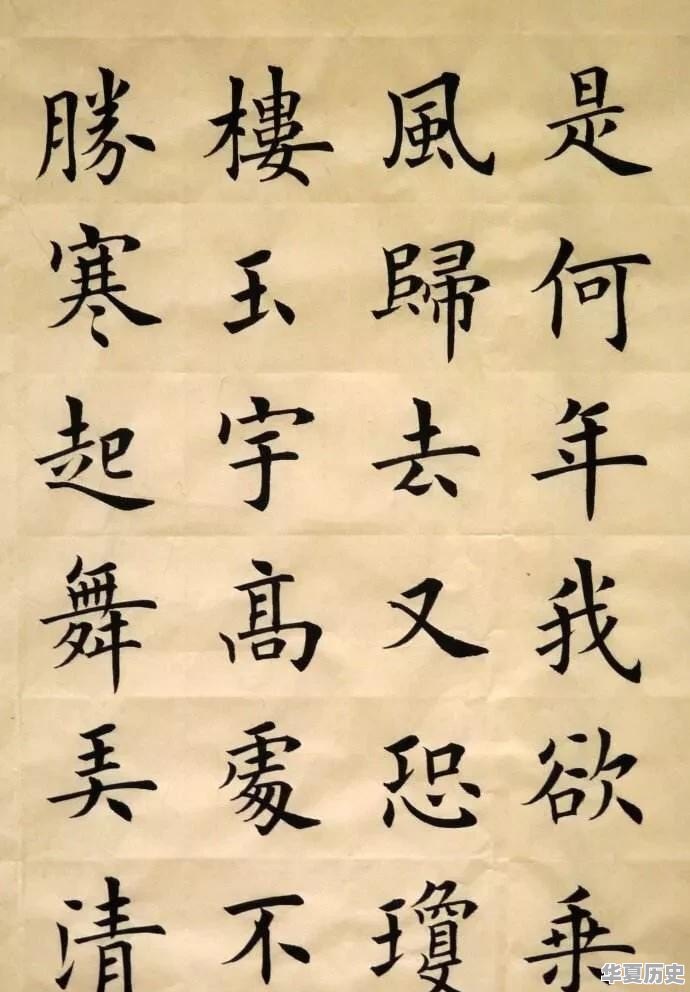 是何年我欲乗
風歸去又恐瓊
樓玉宇高處不
勝寒起舞弄清
华夏历史